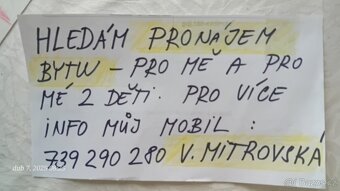 HLEDÁM PRONÁJEM
BYTU - PRO MĚ A PRO
MÉ 2 DĚTI. PRO VÍCE
INFO MŮJ MOBIL :
739 290 280 V. MITROVSKÁ